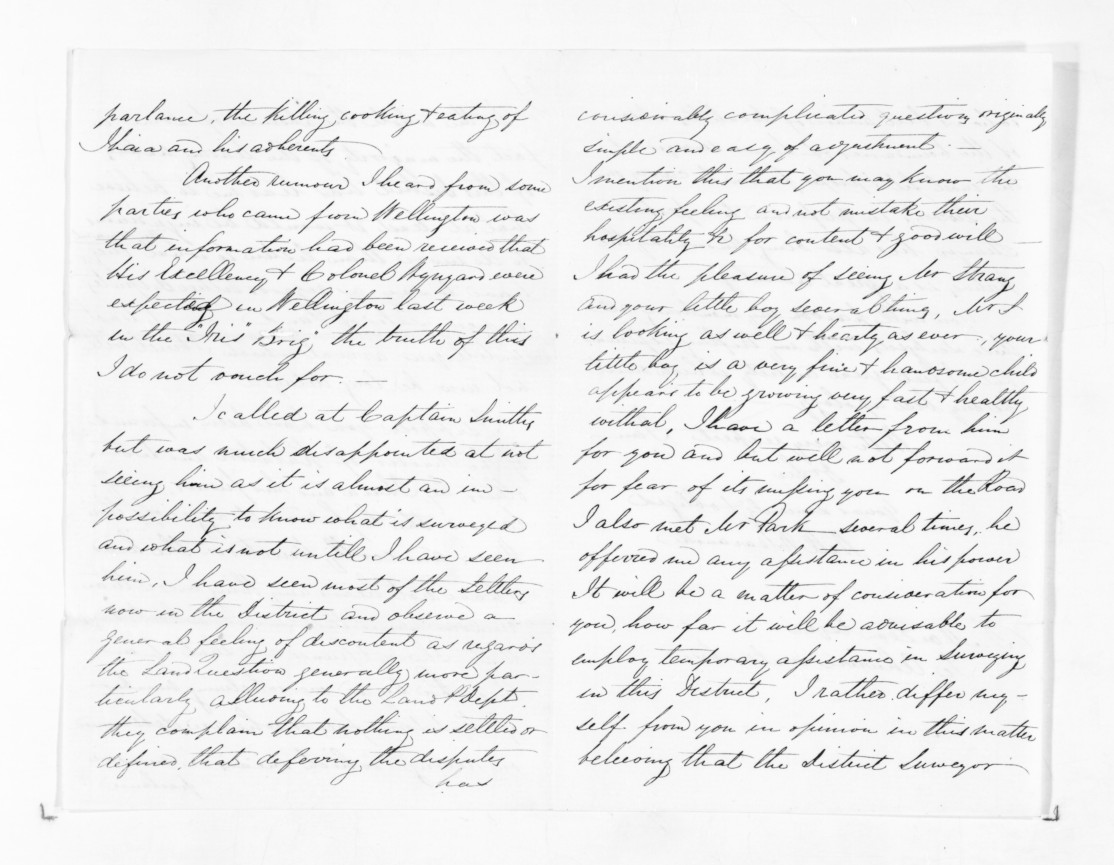 parlance, the killing, cooking & eating of
Ihaia and his adherents
Another rumour I heard from some
parties who came from Wellington was
that information had been received that
His Excellency & Colonel Wynyard were
expected in Wellington last week
in the "Iris" Brig, the truth of this
I do not vouch for —
I called at Captain Smiths
but was much disappointed at not
seeing him as it is almost an im-
possibility to know what is surveyed
and what is not untill I have seen
him, I have seen most of the Settlers
now in the District and observe a
general feeling of discontent as regards
the Land Question generally, more par-
ticularly alluding to the Land P. Dept.
they complain that nothing is settled or
defined, that deferring the disputes
has
considerably complicated questions originally
simple and easy of adjustment. —
I mention this that you may know the
existing feeling and not mistake their
hospitality &c for content & good will —
I had the pleasure of seeing Mr Strang
and your little boy several times, Mr S
is looking as well & hearty as ever, your
little boy is a very fine & handsome child
appears to be growing very fast & healthy
withal, I have a letter from him
for you and but will not forward it
for fear of its missing you on the Road
I also met Mr Park several times, he
offered me any assistance in his power
It will be a matter of consideration for
you, how far it will be advisable to
employ temporary assistance in Surveying
in this District, I rather differ my-
self from you in opinion in this matter
believing that the District Surveyor